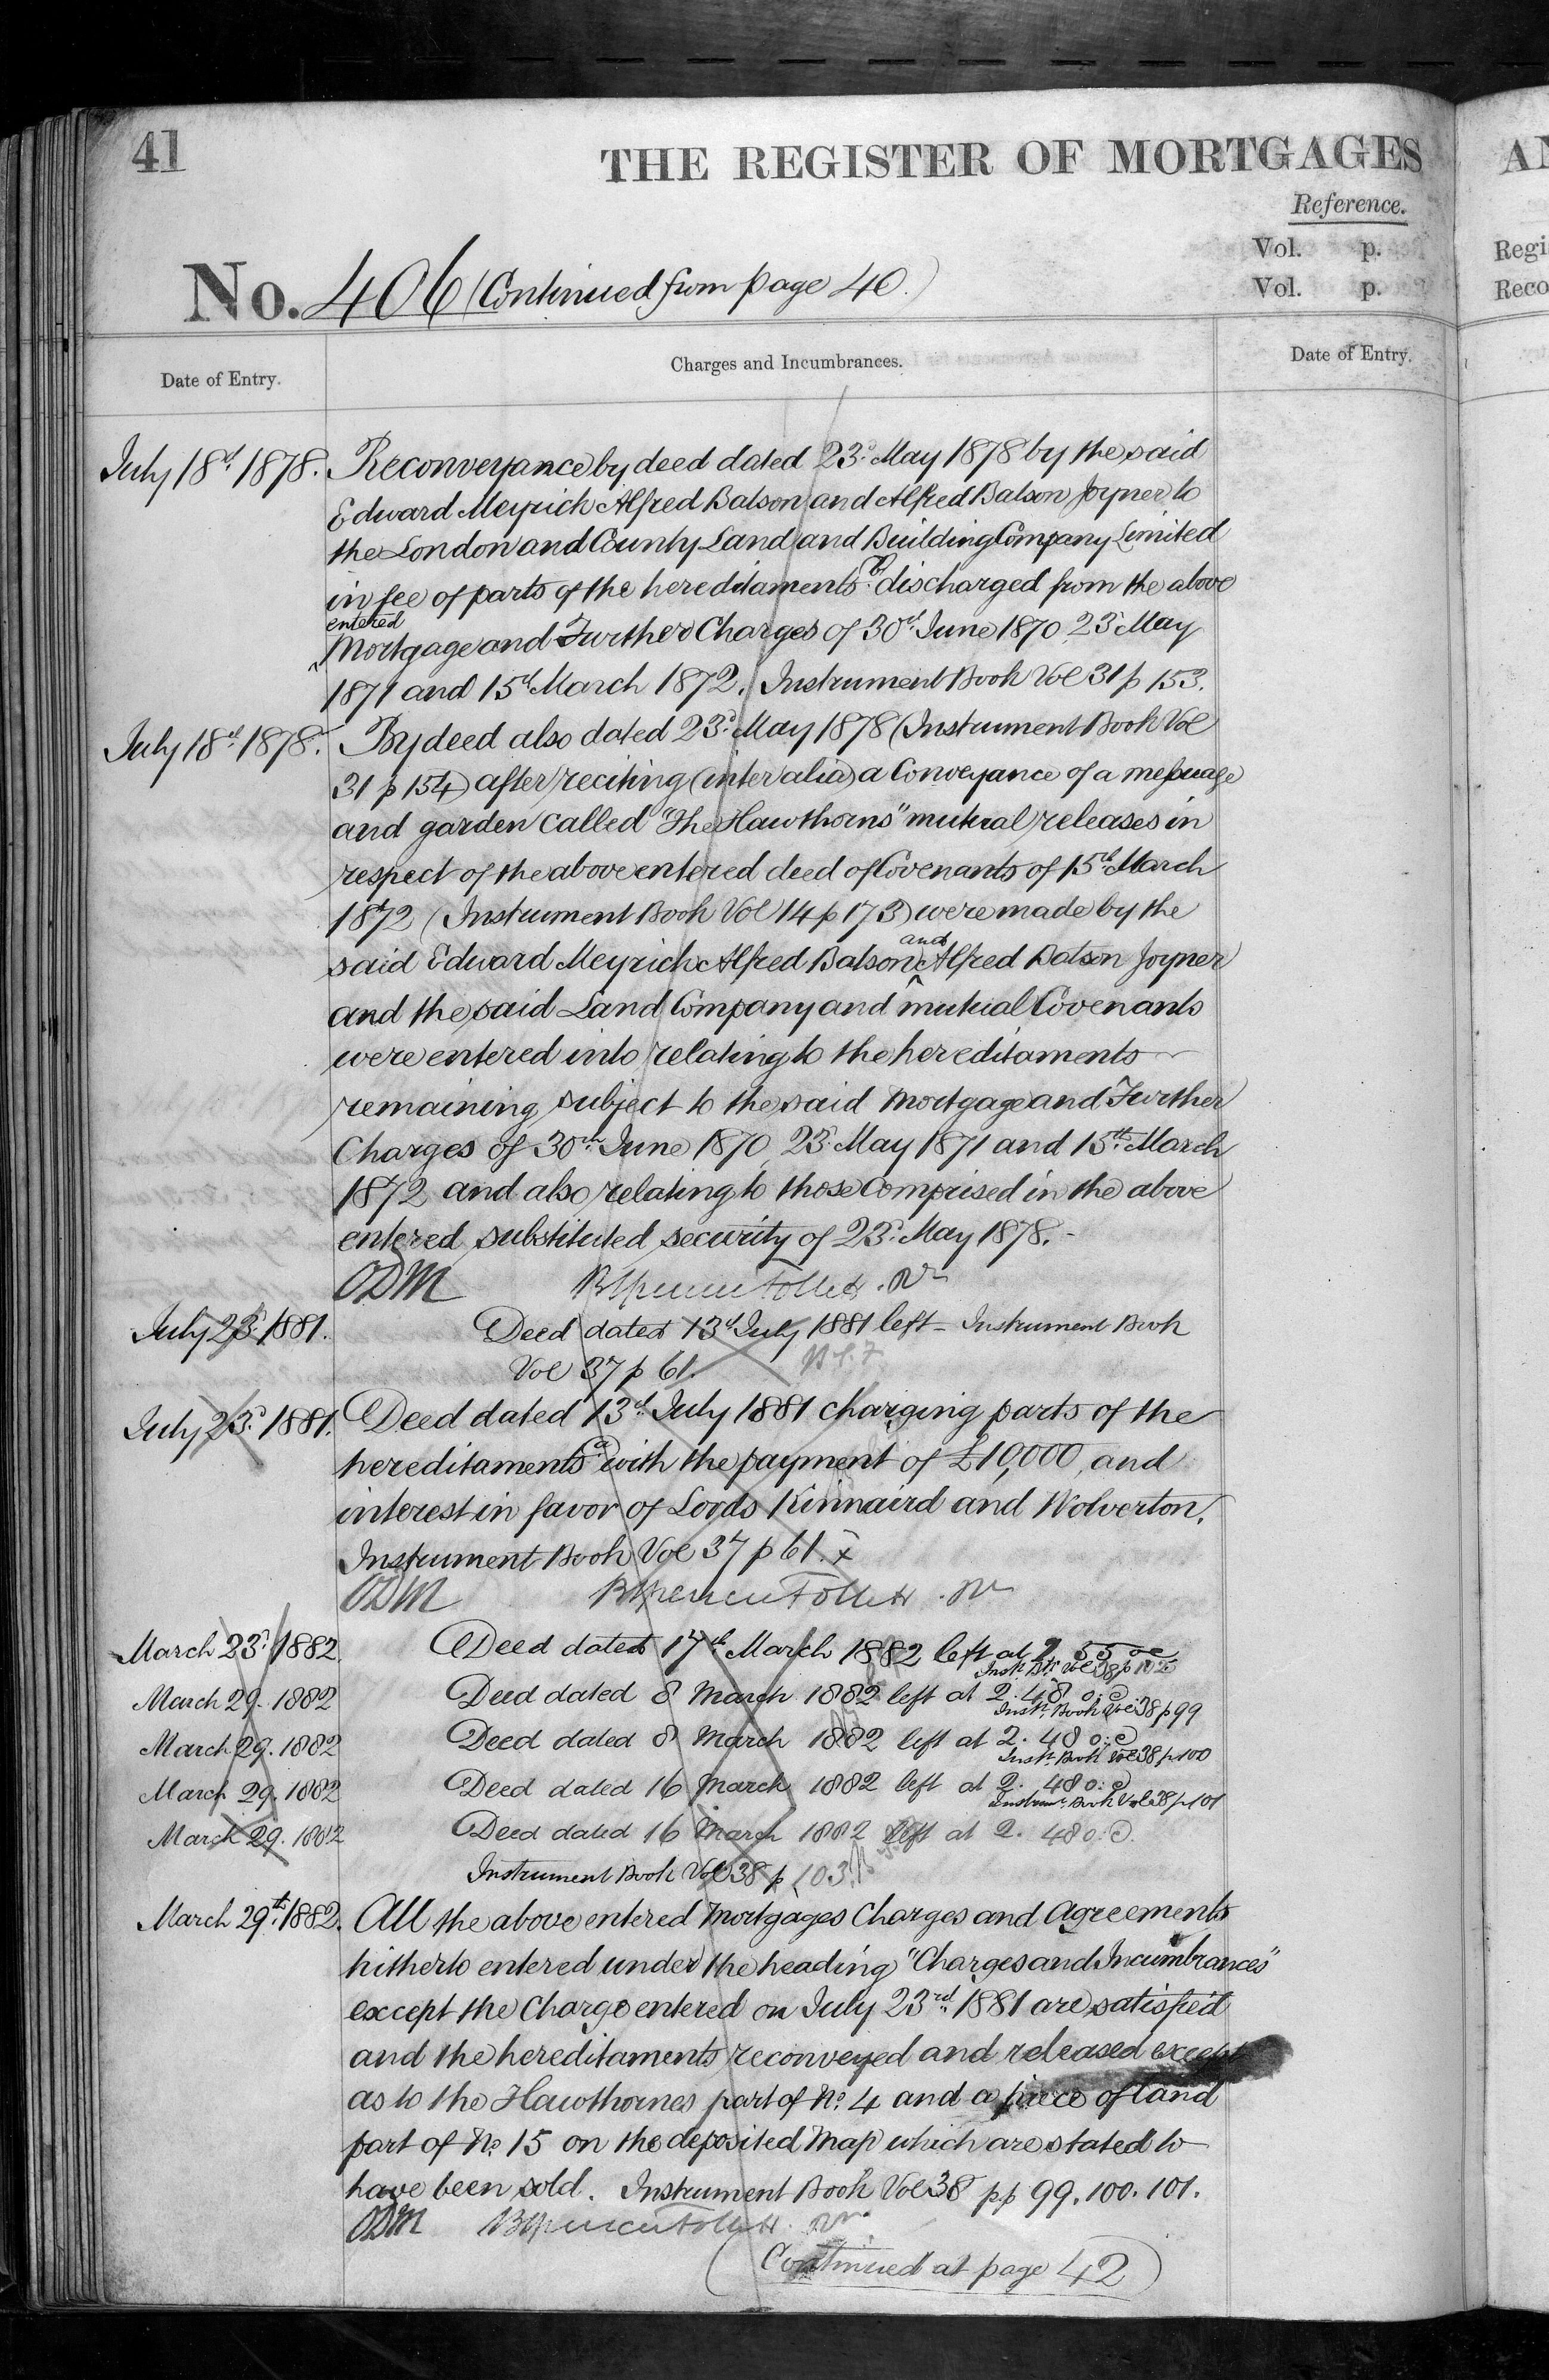 41
THE REGISTER OF MORTGAGES
Reference.
Vol. p.
Vol. p.
No. 406 (Continued from page 40.)
Date of Entry.
Charges and Incumbrances.
Date of Entry.
July 18th 1878. Reconveyance by deed dated 23d. May 1878 by the said
Edward Meyrick Alfred Batson and Alfred Batson Joyner to
the London and County Land and Building Company Limited
in fee of parts of the hereditaments (b) discharged from the above
entered
Mortgage and Further Charges of 30th June 1870 23d May
1871 and 15th March 1872. Instrument Book Vol 31 p 153.
July 18th 1878. By deed also dated 23d. May 1878 (Instrument Book Vol
31 p 154) after reciting (inter alia) a Conveyance of a messuage
and garden called "The Hawthorns" mutual releases in
respect of the above entered deed of Covenants of 15th March
1872 (Instrument Book Vol 14 p 173) were made by the
said Edward Meyrick Alfred Batson and Alfred Batson Joyner
and the said Land Company and mutual Covenants
were entered into relating to the hereditaments
remaining subject to the said Mortgage and Further
Charges of 30th June 1870 23d. May 1871 and 15th March
1872 and also relating to those comprised in the above
entered substituted security of 23d. May 1878.-
ODM
July 23d. 1881. Deed dated 13th July 1881 left - Instrument Book
Vol 37 p 61.
July 23d. 1881. Deed dated 13th July 1881 charging parts of the
hereditaments (a) with the payment of £10,000, and
interest in favor of Lords Kinnaird and Wolverton.
Instrument Book Vol 37 p 61. x
ODM
March 23d. 1882. Deed dated 17th March 1882 left at
Inst. Bk Vol 38 p 102
March 29. 1882 Deed dated 8 March 1882 left at 2. 48 o.c.
Inst. Book Vol 38 p 99
March 29. 1882 Deed dated 8 March 1882 left at 2. 48 o.c
Inst. Book Vol 38 p 100
March 29. 1882 Deed dated 16 March 1882 left at 2. 48 o.c
Instrum. Book Vol 38 p 101
March 29. 1882 Deed dated 16 March 1882 left at 2. 48 o.c.
Instrument Book Vol 38 p 103.
March 29th 1882. All the above entered Mortgages Charges and Agreements
hitherto entered under the heading "Charges and Incumbrances"
except the Charge entered on July 23rd. 1881 are satisfied
and the hereditaments reconveyed and released except
as to the Hawthornes part of No. 4 and a piece of land
part of No. 15 on the deposited Map which are stated to
have been sold. Instrument Book Vol 38 pp 99. 100. 101.
ODM
(Continued at page 42)
AN
Regi
Reco